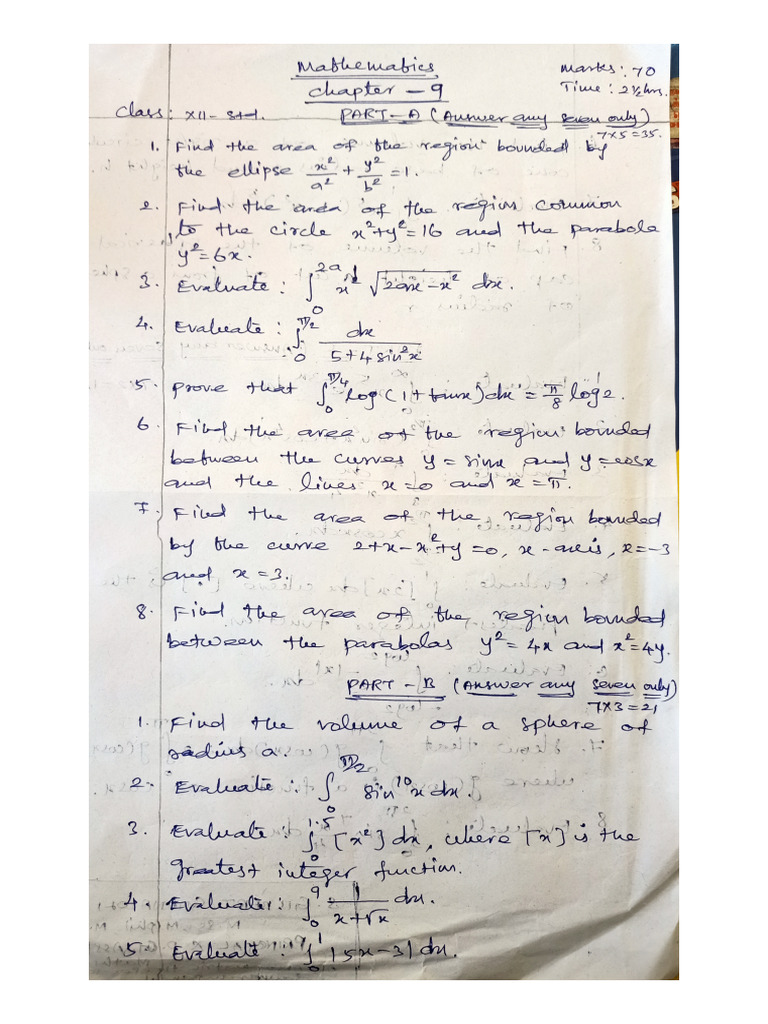 Mathematics
Marks: 70
Chapter - 9
Time: 2½hrs.
Class: XII - Std.
PART-A (Answer any seven only)
7x5=35.
1. Find the area of the region bounded by
the ellipse x²/a² + y²/b² = 1.
2. Find the area of the region common
to the circle x²+y²=16 and the parabola
y²=6x.
3. Evaluate: ∫₀^2a x² √(2ax-x²) dx.
4. Evaluate: ∫₀^π/2 dx / (5+4sin²x)
5. Prove that ∫₀^π/4 log(1+tanx)dx = π/8 log2.
6. Find the area of the region bounded
between the curves y=sinx and y=cosx
and the lines x=0 and x=π.
7. Find the area of the region bounded
by the curve 2+x-x²+y=0, x-axis, x=-3
and x=3.
8. Find the area of the region bounded
between the parabolas y²=4x and x²=4y.
PART-B (Answer any seven only)
7x3=21
1. Find the volume of a sphere of
radius a.
2. Evaluate: ∫₀^π/2 sin¹⁰x dx.
3. Evaluate: ∫₀^1.5 [x²] dx, where [x] is the
greatest integer function.
4. Evaluate: ∫₀^9 1/(x+√x) dx.
5. Evaluate: ∫₀^1 |5x-3| dx.